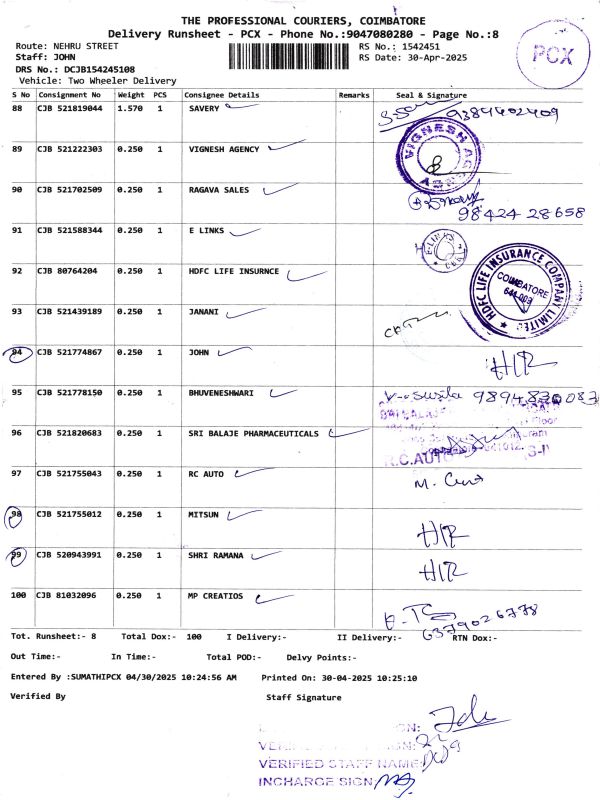 THE PROFESSIONAL COURIERS, COIMBATORE
Delivery Runsheet - PCX - Phone No.:9047080280 - Page No.:8
Route: NEHRU STREET
Staff: JOHN
DRS No.: DCJB154245108
Vehicle: Two Wheeler Delivery
RS No.: 1542451
RS Date: 30-Apr-2025
PCX
S No Consignment No Weight PCS Consignee Details Remarks Seal & Signature
88 CJB 521819044 1.570 1 SAVERY 9384402409
89 CJB 521222303 0.250 1 VIGNESH AGENCY
VIGNESH AG
90 CJB 521702509 0.250 1 RAGAVA SALES
98424 28658
91 CJB 521588344 0.250 1 E LINKS
E-LINKS
92 CJB 80764204 0.250 1 HDFC LIFE INSURNCE
HDFC LIFE INSURANCE COMPANY LIMITED
COIMBATORE
93 CJB 521439189 0.250 1 JANANI
94 CJB 521774867 0.250 1 JOHN HIR
95 CJB 521778150 0.250 1 BHUVENESHWARI
96 CJB 521820683 0.250 1 SRI BALAJE PHARMACEUTICALS
97 CJB 521755043 0.250 1 RC AUTO
R.C.AUTO
98 CJB 521755012 0.250 1 MITSUN HIR
99 CJB 520943991 0.250 1 SHRI RAMANA HIR
100 CJB 81032096 0.250 1 MP CREATIOS
6379026778
Tot. Runsheet:- 8 Total Dox:- 100 I Delivery:- II Delivery:- RTN Dox:-
Out Time:- In Time:- Total POD:- Delvy Points:-
Entered By :SUMATHIPCX 04/30/2025 10:24:56 AM Printed On: 30-04-2025 10:25:10
Verified By Staff Signature
VERIFIED STAFF NAME:
INCHARGE SIGN: